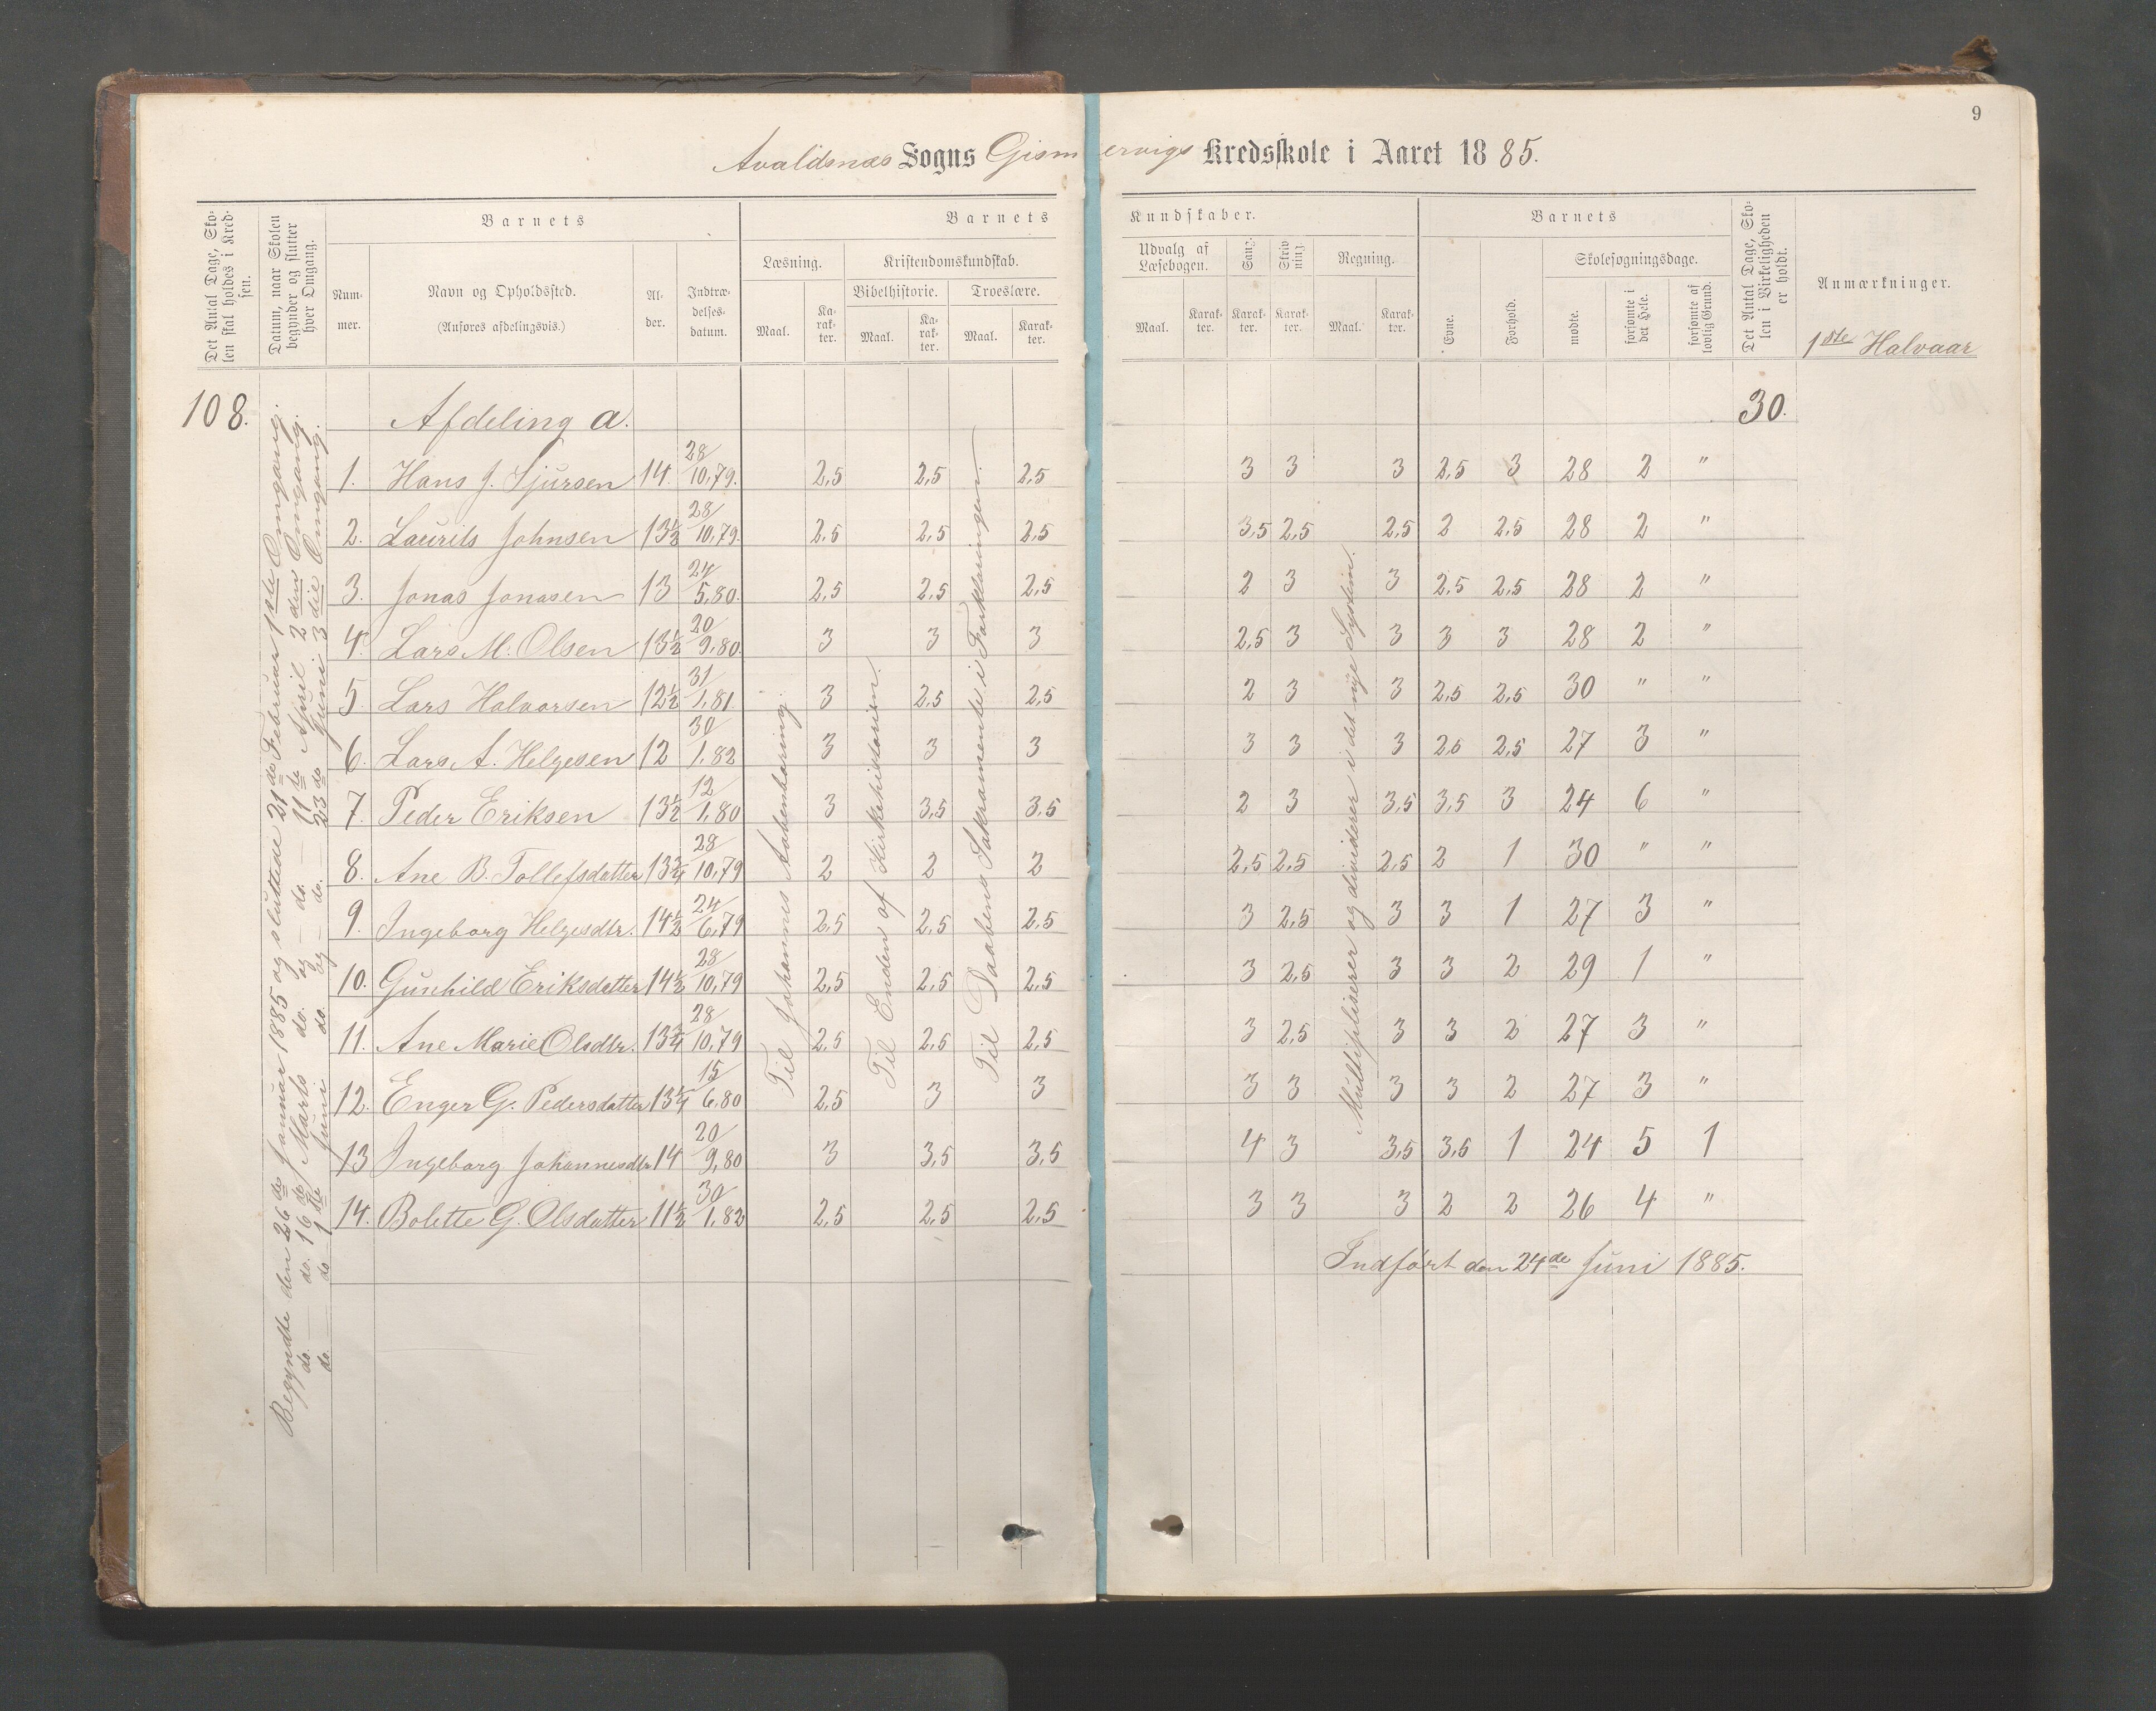 9
Avaldsnæs Sogns Gismervigs Kredsskole i Aaret 1885.
Det Antal Dage, Skolen skal holdes i Kredsen.
Datum, naar Skolen begynder og slutter hver Omgang.
Barnets
Nummer.
Navn og Opholdssted.
(Anføres afdelingsvis.)
Alder.
Indtrædelsesdatum.
Barnets Kundskaber.
Læsning.
Maal.
Karakter.
Kristendomskundskab.
Bibelhistorie.
Maal.
Karakter.
Troeslære.
Maal.
Karakter.
Udvalg af Læsebogen.
Maal.
Karakter.
Sang.
Karakter.
Skrivning.
Karakter.
Regning.
Maal.
Karakter.
Barnets
Evne.
Forhold.
Skolesøgningsdage.
mødte.
forsømte i det Hele.
forsømte af lovlig Grund.
Det Antal Dage, Skolen i Virkeligheden er holdt.
Anmærkninger.
1ste Halvaar
108. Afdeling a. 30.
Begyndte den 26de Januar 1885 og sluttede 21de Februar 1ste Omgang.
do. — do. 16de Marts do. og — do. — 11te April 2den Omgang.
do. — do. 1ste Juni do. og — do. — 23de Juni 3die Omgang.
1. Hans J. Sjursen 14 28/10,79. 2,5 2,5 2,5 3 3 3 2,5 3 28 2 "
2. Laurits Johnsen 13½ 28/10,79. 2,5 2,5 2,5 3,5 2,5 2,5 2 2,5 28 2 "
3. Jonas Jonasen 13 24/5,80. 2,5 2,5 2,5 2 3 3 2,5 2,5 28 2 "
4. Lars M. Olsen 13½ 20/9,80. 3 3 3 2,5 3 3 3 3 28 2 "
5. Lars Halvorsen 12½ 31/1,81. 3 2,5 2,5 2 3 3 2,5 2,5 30 " "
6. Lars A. Helgesen 12 30/1,82 3 3 3 3 3 3 2,5 2,5 27 3 "
7. Peder Eriksen 13½ 12/1,80 3 3,5 3,5 2 3 3,5 3,5 3 24 6 "
8. Ane B. Tollefsdatter 13¾ 28/10,79 2 2 2 2,5 2,5 2,5 2 1 30 " "
9. Ingeborg Helgesdtr. 14½ 24/6,79 2,5 2,5 2,5 3 2,5 3 3 1 27 3 "
10. Gunhild Eriksdatter 14½ 28/10,79 2,5 2,5 2,5 3 2,5 3 3 2 29 1 "
11. Ane Marie Olsdtr. 13¾ 28/10,79 2,5 2,5 2,5 3 2,5 3 3 2 27 3 "
12. Enger G. Pedersdatter 13¼ 15/6,80 2,5 3 3 3 3 3 3 2 27 3 "
13 Ingeborg Johannesdtr 14 20/9,80 3 3,5 3,5 4 3 3,5 3,5 1 24 5 1
14. Bolette G. Olsdatter 11½ 30/1,82 2,5 2,5 2,5 3 3 3 2 2 26 4 "
Til Johannes Aabenbaring.
Til Enden af Kirkehistorien.
Til Daabens Sakramente i Forklaringen.
Multipliserer og dividerer i det nye System.
Indført den 24de Juni 1885.